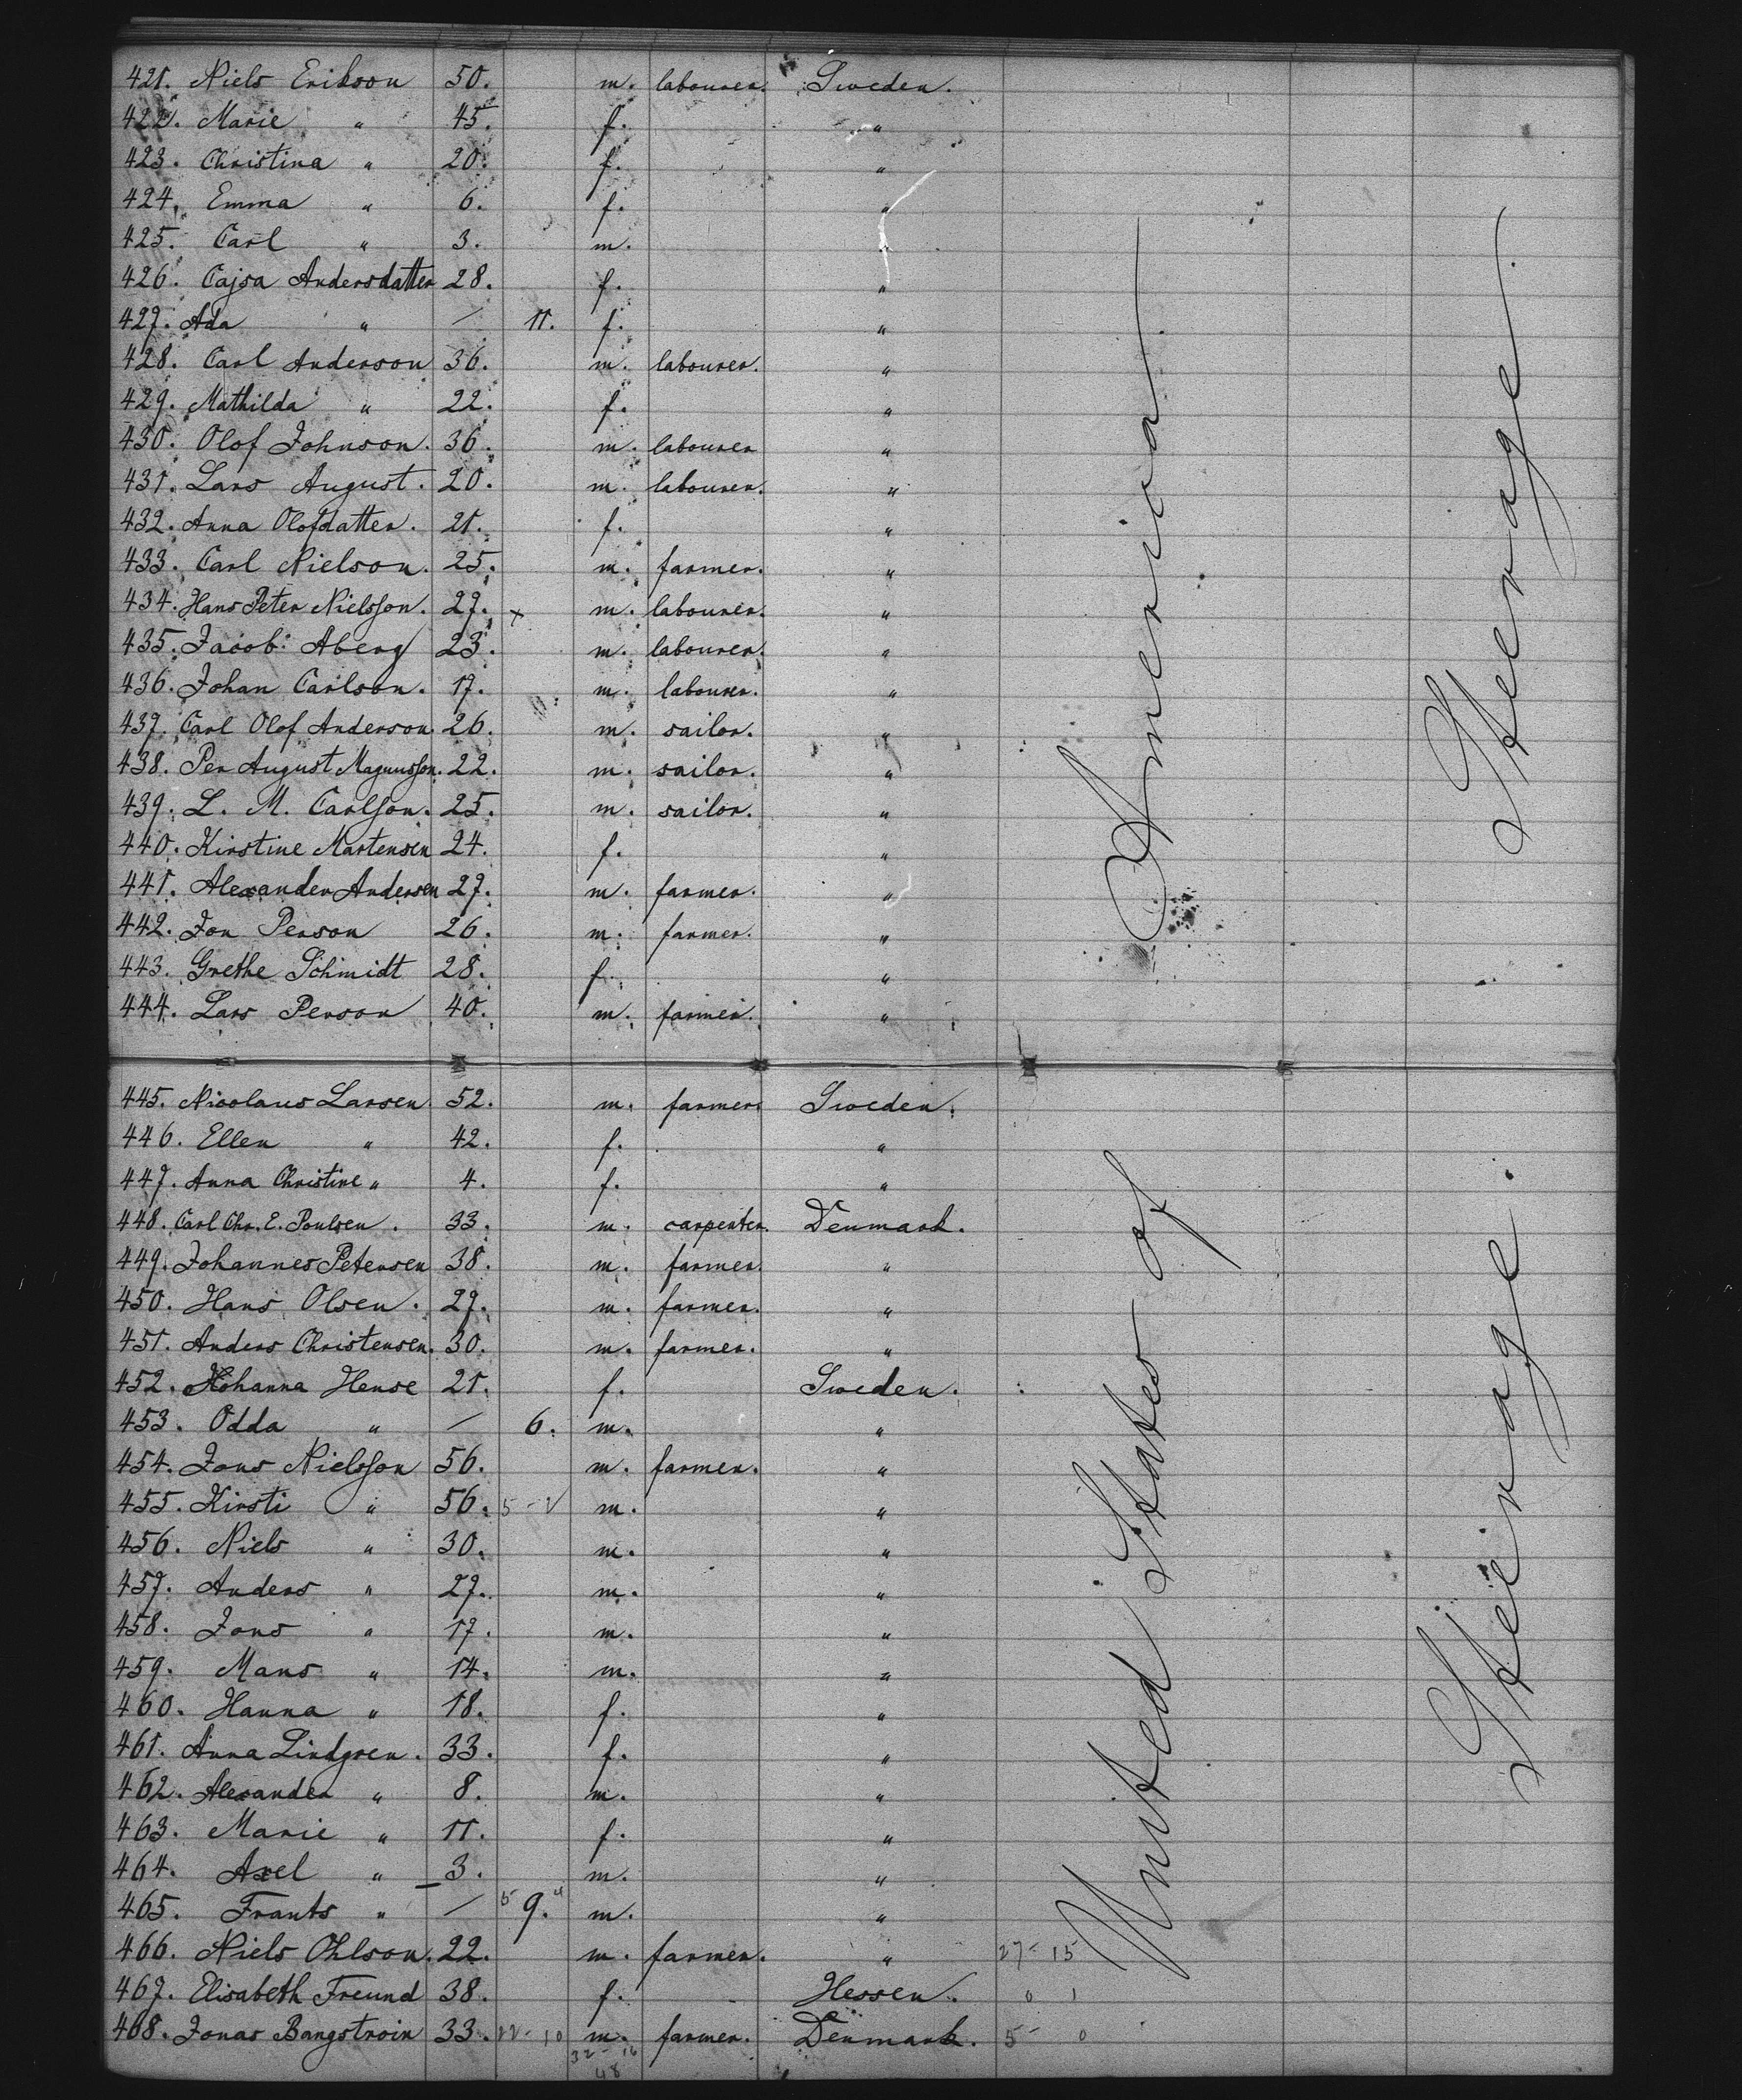 421. Niels Erikson 50. m. labourer. Sweden.
422. Marie " 45. f. "
423. Christina " 20. f. "
424. Emma " 6. f. "
425. Carl " 3. m. "
426. Cajsa Andersdatter 28. f. "
427. Ada " / 11. f. "
428. Carl Anderson 36. m. labourer. "
429. Mathilda " 22. f. "
430. Olof Johnson. 36. m. labourer "
431. Lars August. 20. m. labourer. "
432. Anna Olofdatter. 21. f. "
433. Carl Nielson. 25. m. farmer. "
434. Hans Peter Nielsson. 27. x m. labourer. "
435. Jacob Aberg 23. m. labourer. "
436. Johan Carlson. 17. m. labourer. "
437. Carl Olof Anderson. 26. m. sailor. "
438. Per August Magnusson. 22. m. sailor. "
439. L. M. Carlson. 25. m. sailor. "
440. Kirstine Martensen 24. f. "
441. Alexander Andersen 27. m. farmer. "
442. Jon Person 26. m. farmer. "
443. Grethe Schmidt 28. f. "
444. Lars Person 40. m. farmer. "
America.
Steerage.
445. Nicolaus Larsen. 52. m. farmer. Sweden.
446. Ellen " 42. f. "
447. Anna Christine " 4. f. "
448. Carl Chr. E. Poulsen. 33. m. carpenter. Denmark.
449. Johannes Petersen 38. m. farmer. "
450. Hans Olsen. 27. m. farmer. "
451. Anders Christensen. 30. m. farmer. "
452. Johanna Hense 21. f. Sweden.
453. Odda " / 6. m. "
454. Jons Nielsson 56. m. farmer. "
455. Kirsti " 56. m. "
456. Niels " 30. m. "
457. Anders " 27. m. "
458. Jons " 17. m. "
459. Mans " 14. m. "
460. Hanna " 18. f. "
461. Anna Lindgren. 33. f. "
462. Alexander " 8. m. "
463. Marie " 11. f. "
464. Axel " 3. m. "
465. Frants " / 9. m. "
466. Niels Ohlson. 22. m. farmer. " 27-15
467. Elisabeth Freund 38. f. Hessen. 0 1
468. Jonas Bangstroin 33. 22-10 m. farmer. Denmark. 5- 0
32-16
48
United States of
Steerage.